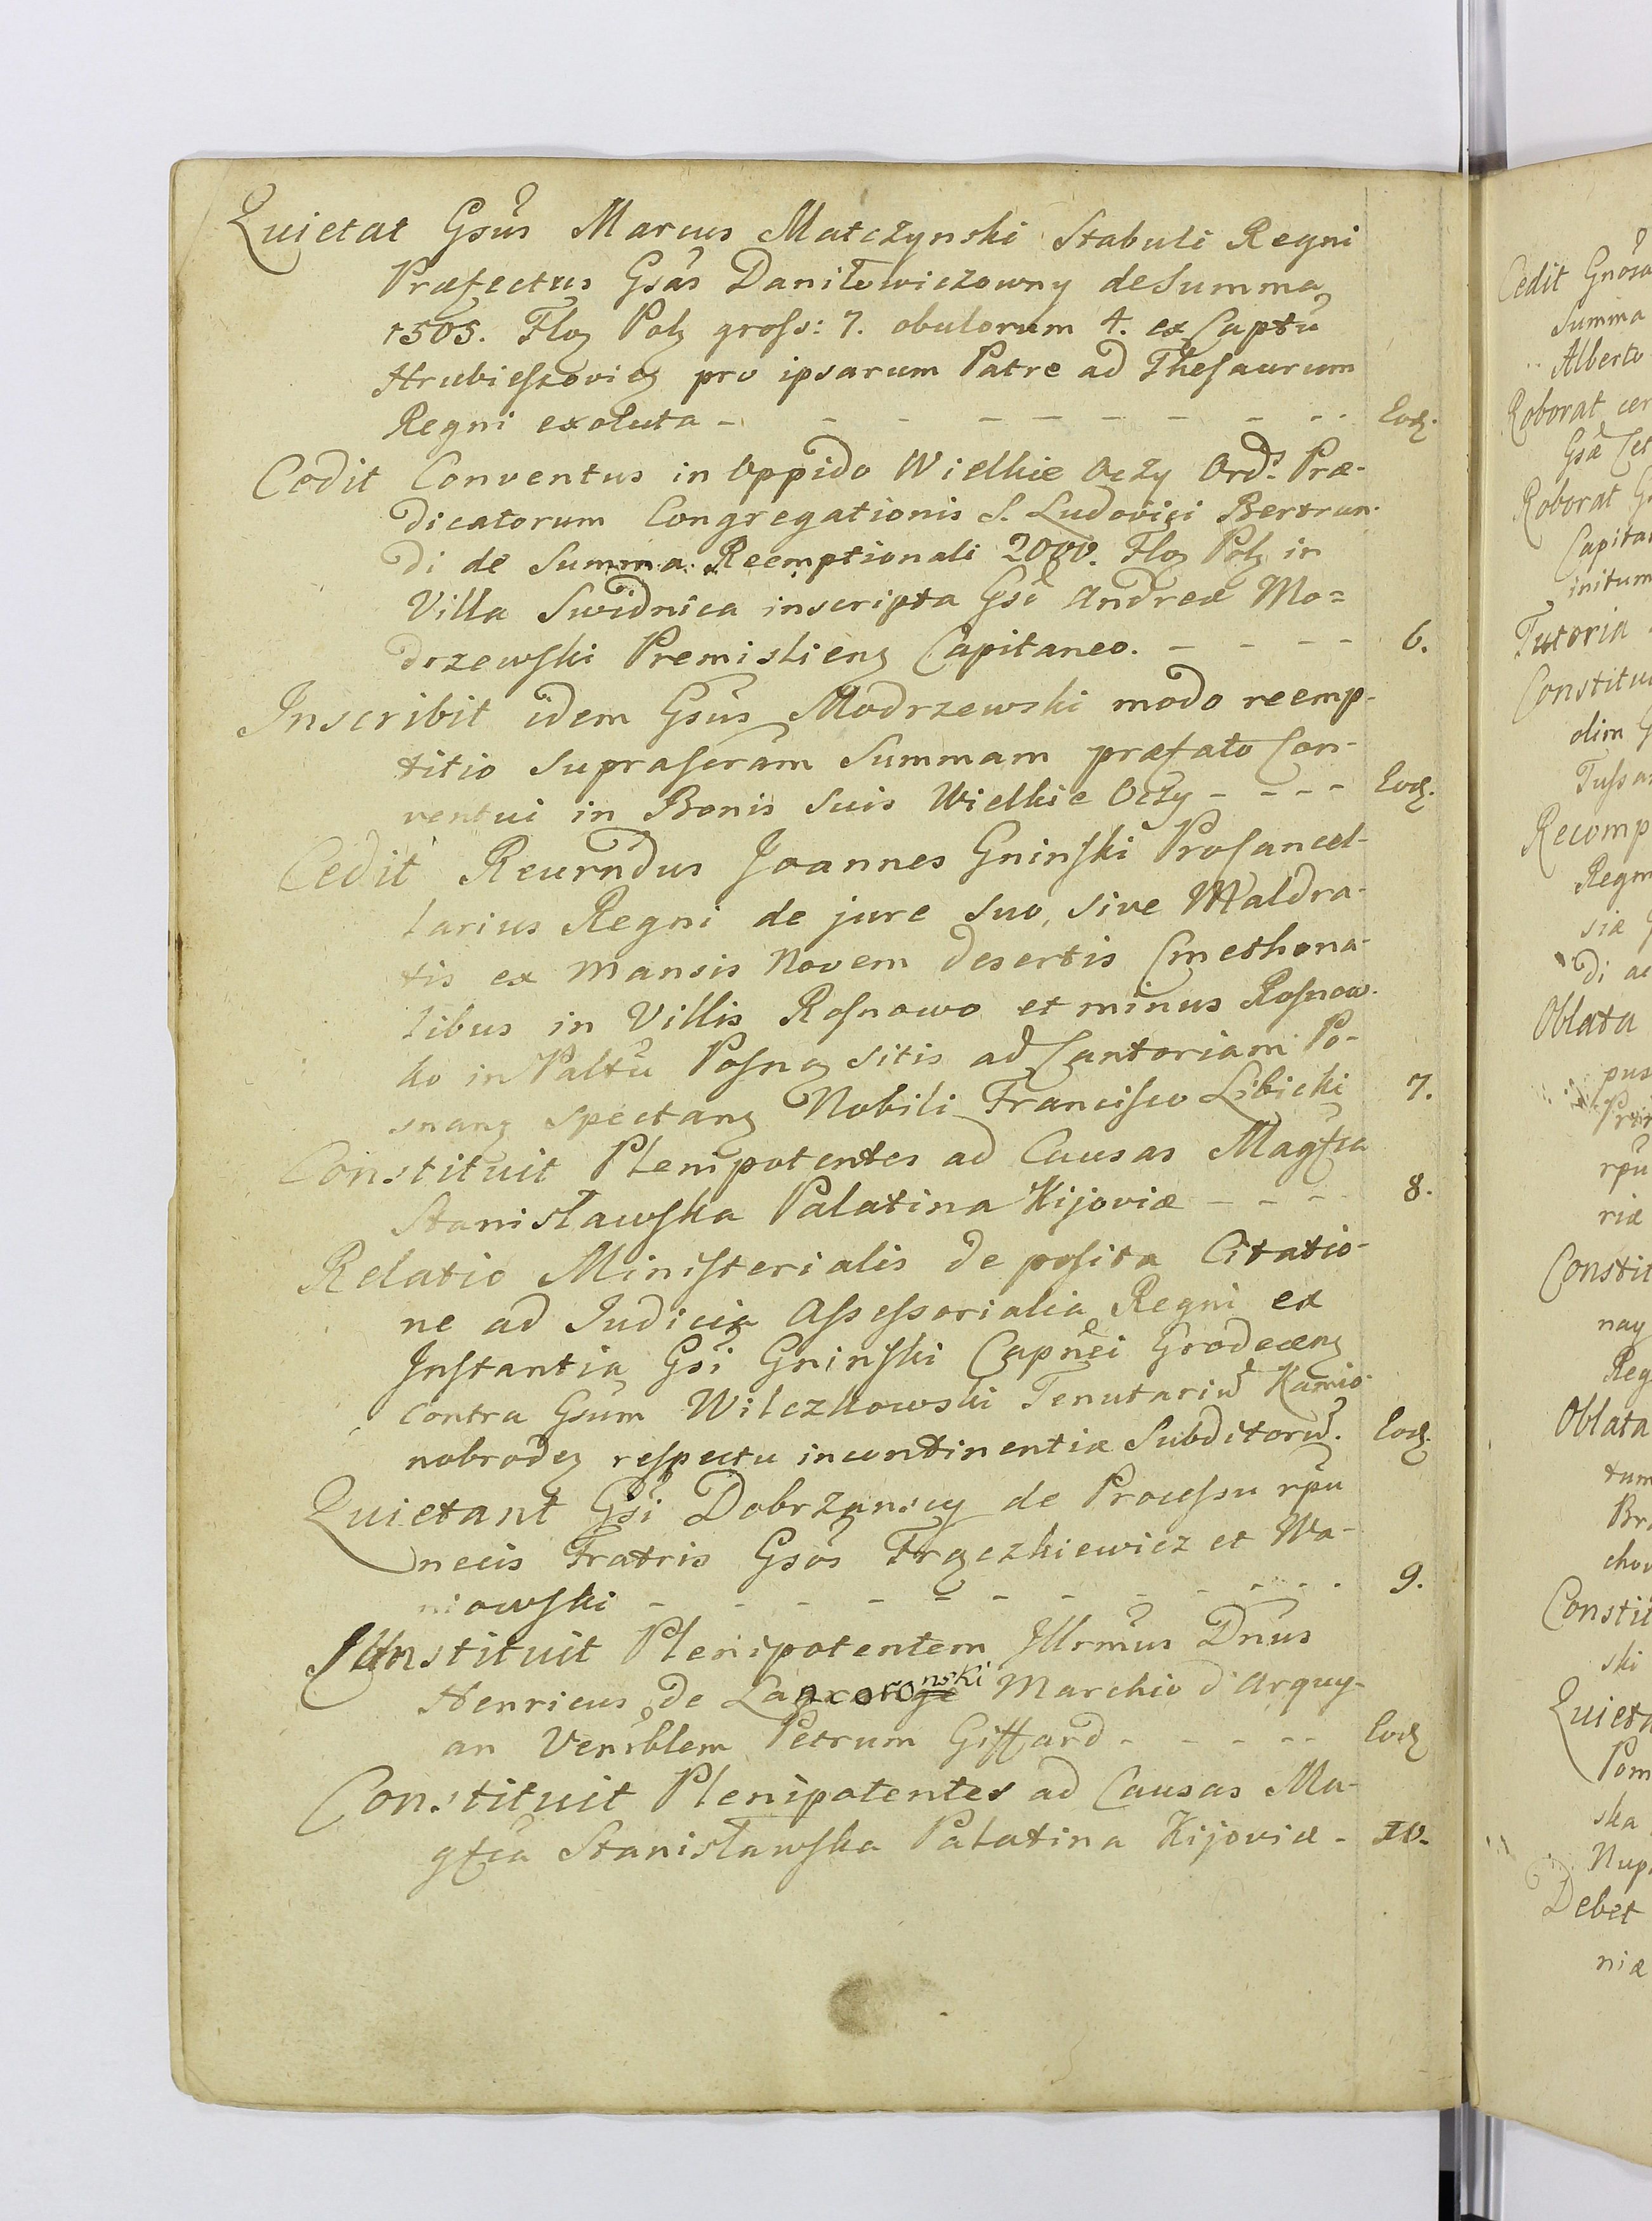 Quietat Gsus Marcus Matczynski Stabuli Regni
Præfectus Gsas Daniłowiczowny de Summa
1505. Floz Polz gross: 7. obulorum 4. ex Captu
Hrubieszovieg pro ipsarum Patre ad Thesaurum
Regni exoluta - - - - - - - - - - Eod.
Cedit Conventus in Oppido Wielkie Oczy Ord. Præ-
dicatorum Congregationis S. Ludovici Bertran-
di de Summa Reemptionali 2000. Floz Polz in
Villa Swidnica inscripta Gso Andreæ Mo=
drzewski Premislieng Capitaneo. - - - - 6.
Inscribit idem Gsus Modrzewski modo reemp-
titio Suprascram Summam præfato Con-
ventui in Bonis Suis Wielkie Oczy - - - - Eod.
Cedit Reverndus Joannes Gninski Procancel-
larius Regni de jure Suo, sive Maldra-
tis ex Mansis Novem desertis Cmethona-
libus in Villis Rosnowo et minus Rosnow-
ko in Paltu Posng sitis ad Cantoriam Po-
snang Spectang Nobili Francisco Libicki 7.
Constituit Plenipotentes ad Causas Magfca
Stanisławska Palatina Kijoviæ - - - 8.
Relatio Ministerialis de posita Citatio-
ne ad Judicia Assessorialia Regni ex
Instantia Gsi Gninski Capnei Grodeceng
contra Gsum Wilczkowski Tenutariu Kamio-
nobrodez respectu incontinentiæ Subditoru. Eod.
Quietant Gsi Dobrzanscy de Processu rpu
necis Fratris Gsos Frączkiewicz et Wa-
niowski - - - - - - - - - - 9.
Constituit Plenipotentem Illrmus Dnus
Henricus de Lanckoronski Marchio d'Arquy-
an Venrblem Petrum Giffard - - - - - Eod
Constituit Plenipotentes ad Causas Ma-
gfca Stanisławska Palatina Kijoviæ - 10.
Cedit Gnosa
Summa
Alberto
Roborat cer
Gsæ
Roborat
Capita
initum
Tutoria
Constitu
olim
Tussa
Recomp
Regn
siæ
di ac
Oblata
pus
rpu
riæ
Constit
nay
Reg
Oblata
tum
Br
chov
Constit
ski
Quieta
Pom
ska
Nup
Debet
niæ